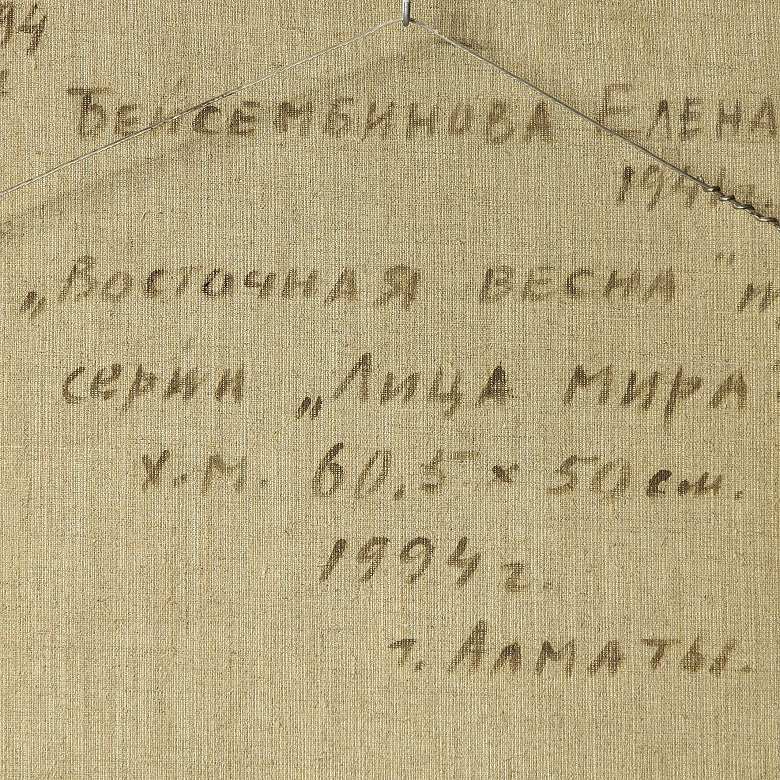 94
Бейсембинова Елена
194 г.
„Восточная весна"
серии „Лица мира
х.м. 60,5 × 50 см.
1994 г.
г. Алматы.